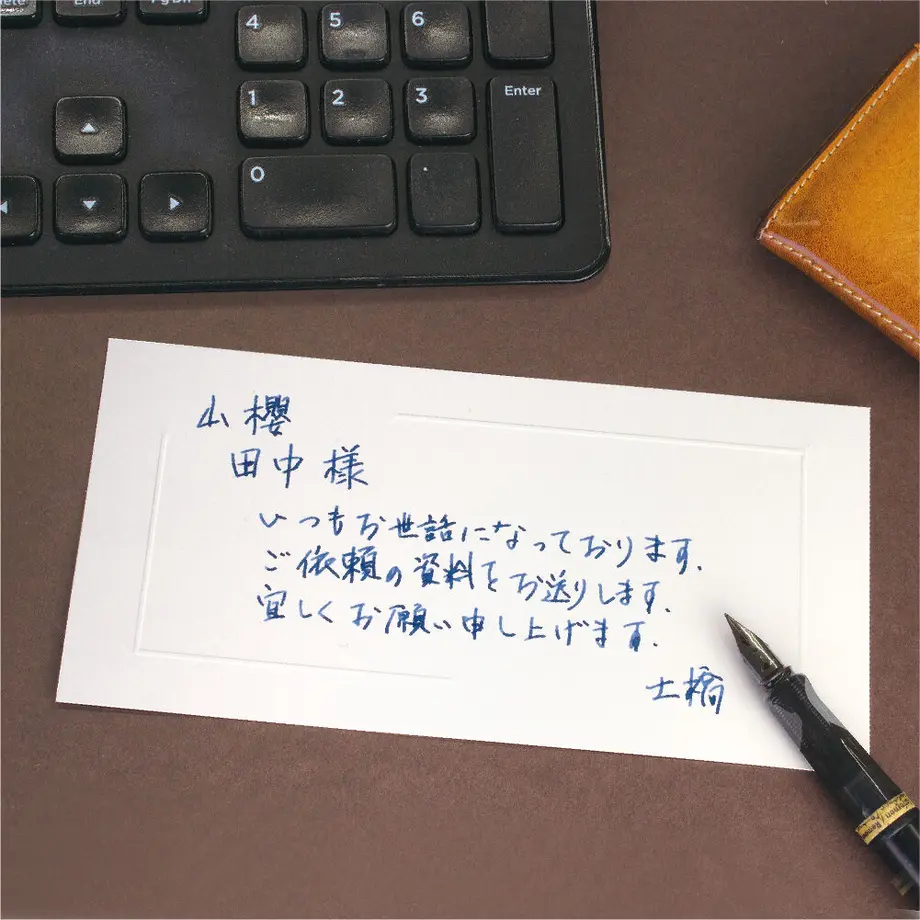 End
4 5 6
1 2 3 Enter
0 .
山櫻
田中 様
いつもお世話になっております。
ご依頼の資料をお送りします。
宜しくお願い申し上げます。
土橋